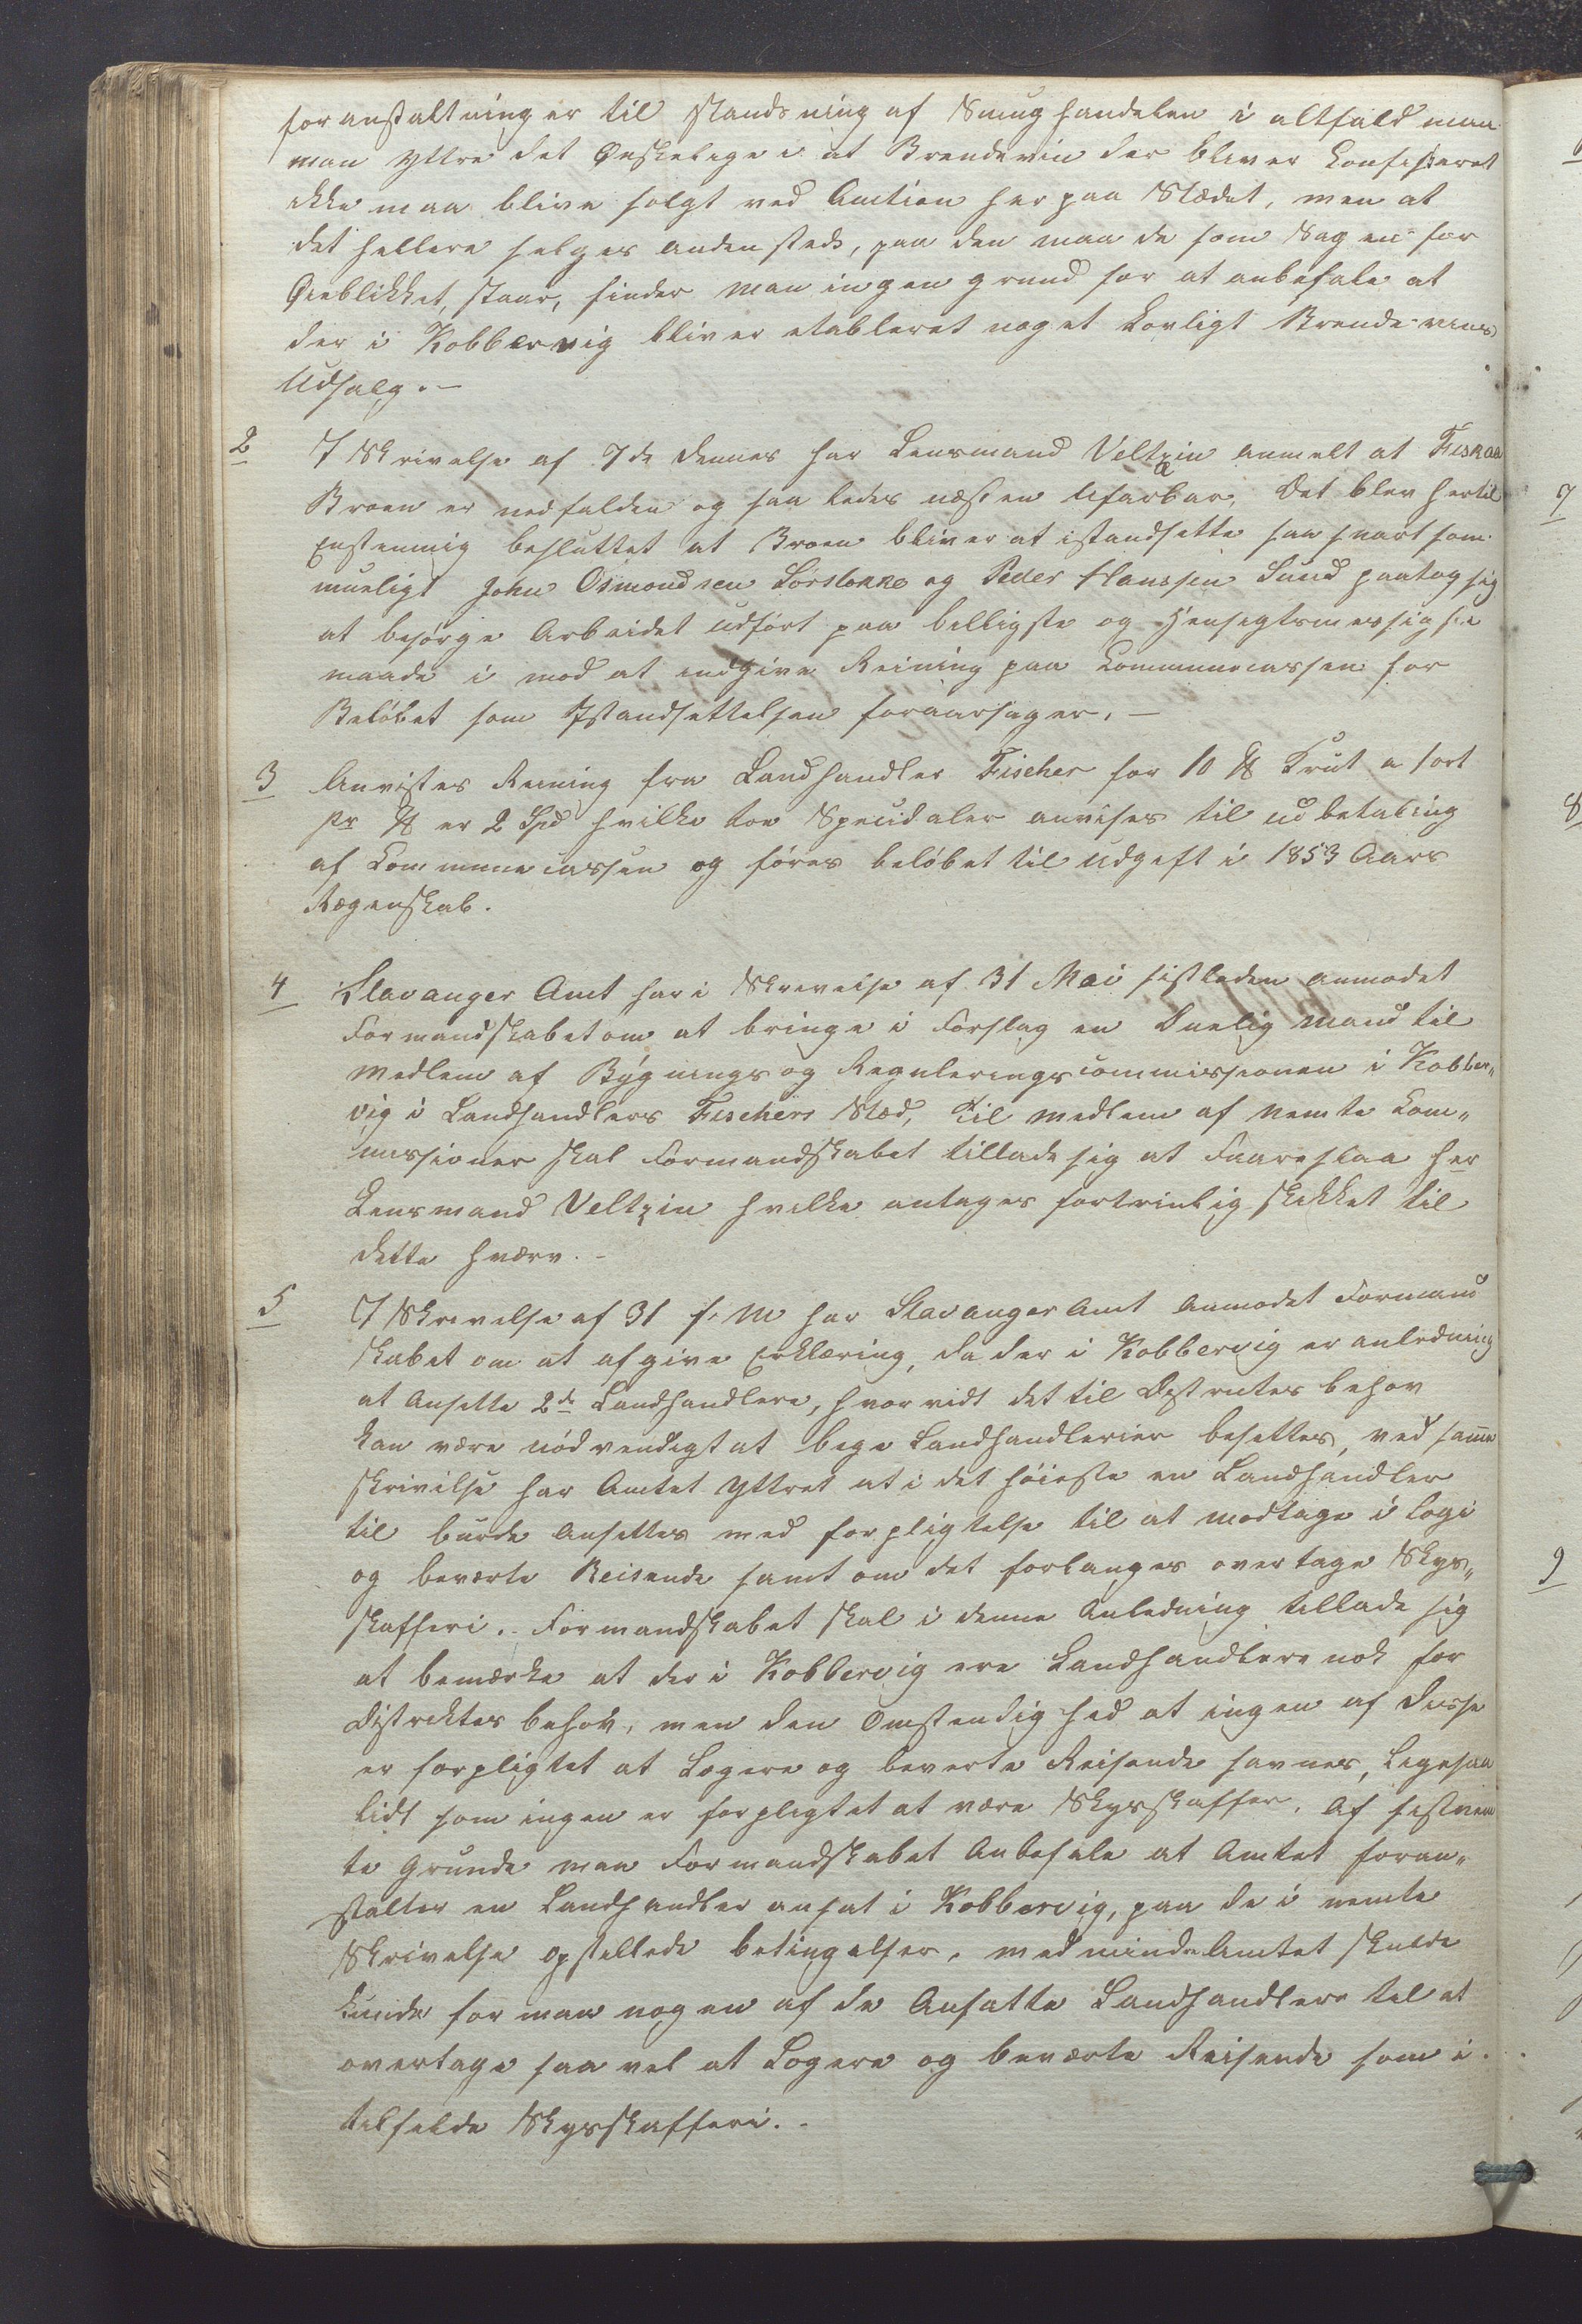 foranstaltninger til standsning af Smughandelen i altfald maa
man yttre det Ønskelige i at Brendevin der bliver Confiskeret
ikke maa blive solgt ved Auction her paa Stædet, men at
det hellere selges andensteds, paa den maade som Sagen for
Øieblikket, staar, finder man ingen grund for at anbefale at
der i Kobbervig bliver etableret noget Lovligt Brendevins
Udsalg. -
2 I Skrivelse af 7de dennes har Lensmand Veltzin anmelt at Feskaa
Broen er nedfalden og saaledes næsten Ufarbar, Det blev hertil
Enstemmig besluttet at Broen bliver at istandsette saa snart som
mueligt John Osmondsen Sørstokke og Peder Hanssen Sund paatog sig
at besørge Arbeidet udført paa billigste og Hensegtsmessigste
maade i mod at indgive Reining paa Communecassen for
Beløbet som Istandsettelsen foraarsager. -
3 Anvistes Reening fra Landhandler Fischer for 10 ℔ Krut a 1ort
pr ℔ er 2 Spd hvilke toe Speeidaler anvises til udbetaling
af Communecassen og føres beløbet til udgeft i 1853 Aars
Regenskab.
4 Stavanger Amt har i Skrevelse af 31 Mai sistleden anmodet
Formandskabet om at bringe i Forslag en Duelig mand til
Medlem af Bygnings og Reguleringscommissionen i Kobber„
vig i Landhandlers Feschers Stæd, til medlem af nemte Com„
missioner skal Formandskabet tillade sig at Foareslaa her
Lensmand Veltzin hvilke antages fortrinlig skikket til
dette hværv. -
5 I Skrevelse af 31 f. M har Stavanger Amt Anmodet Formand
skabet om at afgive Erklæring, da der i Kobbervig er anledning
at Ansette 2de Landhandlere, hvorvidt det til Distrectes behov
kan være nødvendigt at bege Landhandlerier besettes, ved samme
skrivilse har Amtet Yttret at i det høieste en Landhandler
til burde Ansettes med forpligtelse til at modtage i Logi
og beværte Reisende samt om det forlanges overtage Skys„
skafferi. - Formandskabet skal i denne Anledning tillade sig
at bemærke at der i Kobbervig ere Landhandlere nok for
Distrektes behov, men den Omstendighed at ingen af disse
er forpligtet at Logere og beverte Reisende savnes, Legesaa
lidt som ingen er forplegtet at være Skysskaffer. Af sistnem
te Grunde maa Formandskabet Anbefale at Amtet foran„
stalter en Landhandler ansat i Kobbervig, paa de i nemte
Skrivelse opstellede betingelser, medmindre Amtet skulde
kunde formaa nogen af de Ansatte Landhandlere til at
overtage saa vel at Logere og beværte Reisende som i
tilfelde Skysskafferi. -